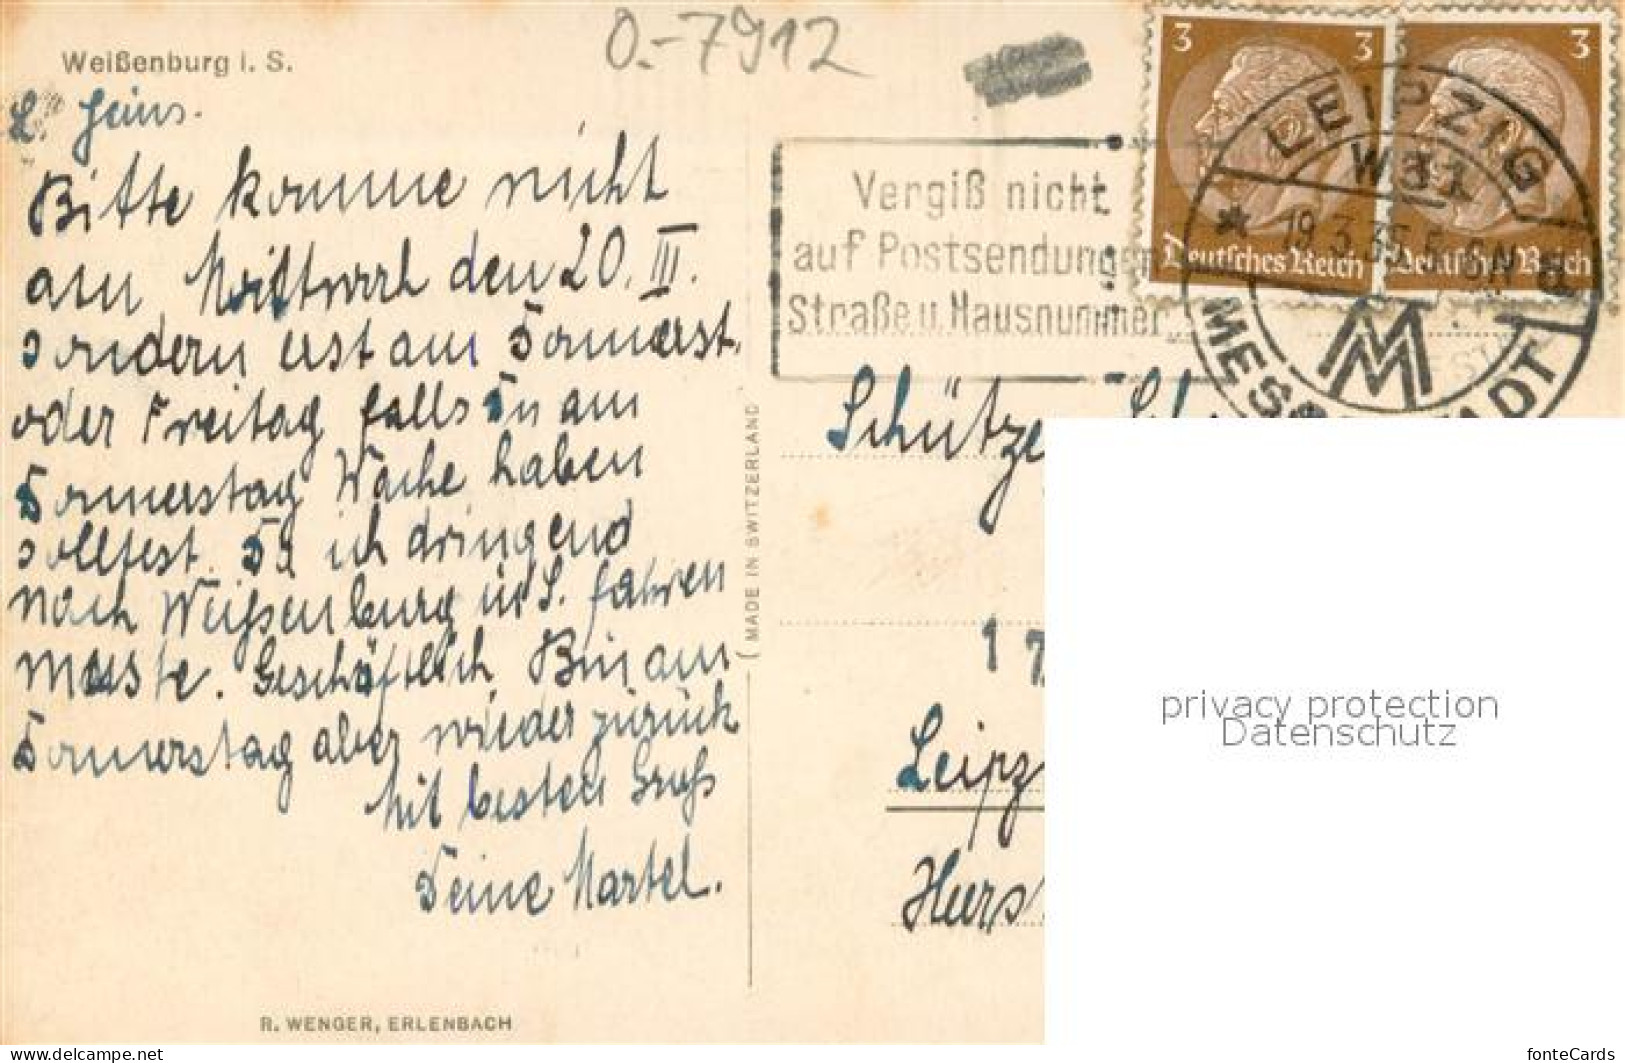 Weißenburg i. S.
0.-7912
L. Heins.
Bitte komme nicht
am Mittwoch den 20. III.
sondern erst am Donnerst.
oder Freitag falls Du am
Donnerstag Wache haben
solltest. Da ich dringend
nach Weissenburg in S. fahren
musste. Geschäftlich Bin am
Donnerstag aber wieder zurück
Mit besten Gruss
Deine Martel.
R. WENGER, ERLENBACH
(MADE IN SWITZERLAND
Vergiß nicht
auf Postsendungen
Straße u. Hausnummer
3 3
3
Deutsches Reich
Deutsches Reich
LEIPZIG
W31
* 19.3.35.
MM
MESSESTADT
Schütze
17
Leipz
Heers
privacy protection
Datenschutz
https://www.delcampe.net
fonteCards